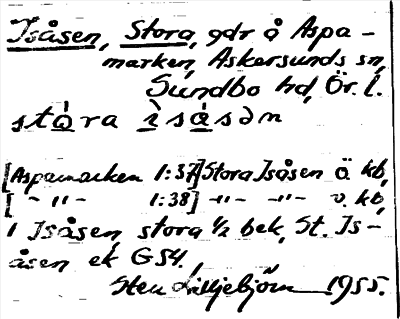 Isåsen, Stora, gdr å Aspa-
marken, Askersunds sn,
Sundbo hd, Ör. l.
stòra ìsásən
[Aspamarken 1:37] Stora Isåsen ö kb,
[ -"- 1:38] -"- -"- v. kb,
1 Isåsen, stora ½ bek, St. Is-
åsen ek GS4.,
Sten Lilljebjörn 1955.